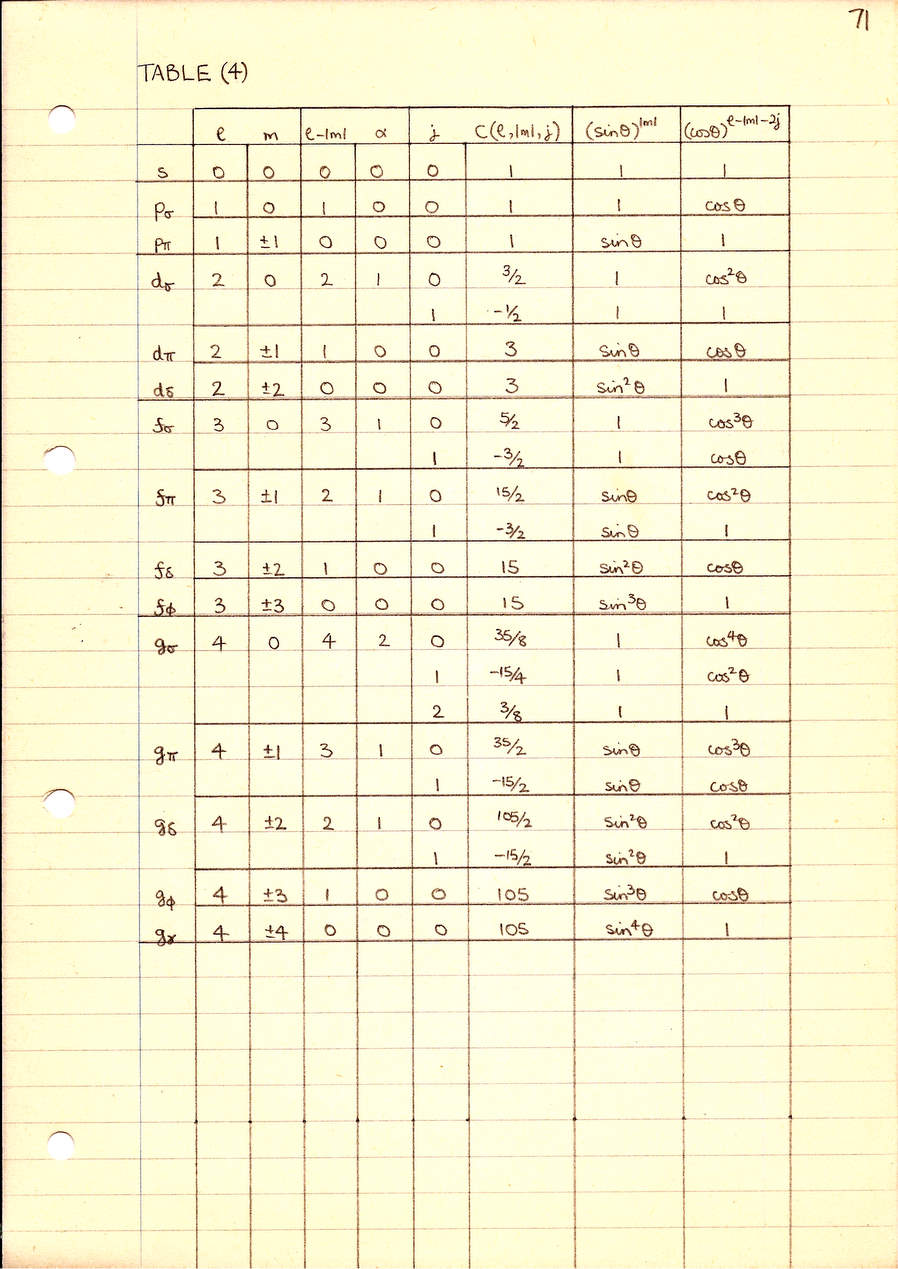 71
TABLE (4)
ℓ m ℓ-|m| α j C(ℓ,|m|,j) (sinθ)^|m| (cosθ)^ℓ-|m|-2j
s 0 0 0 0 0 1 1 1
pσ 1 0 1 0 0 1 1 cosθ
pπ 1 ±1 0 0 0 1 sinθ 1
dσ 2 0 2 1 0 3/2 1 cos²θ
1 -1/2 1 1
dπ 2 ±1 1 0 0 3 sinθ cosθ
dδ 2 ±2 0 0 0 3 sin²θ 1
fσ 3 0 3 1 0 5/2 1 cos³θ
1 -3/2 1 cosθ
fπ 3 ±1 2 1 0 15/2 sinθ cos²θ
1 -3/2 sinθ 1
fδ 3 ±2 1 0 0 15 sin²θ cosθ
fϕ 3 ±3 0 0 0 15 sin³θ 1
gσ 4 0 4 2 0 35/8 1 cos⁴θ
1 -15/4 1 cos²θ
2 3/8 1 1
gπ 4 ±1 3 1 0 35/2 sinθ cos³θ
1 -15/2 sinθ cosθ
gδ 4 ±2 2 1 0 105/2 sin²θ cos²θ
1 -15/2 sin²θ 1
gϕ 4 ±3 1 0 0 105 sin³θ cosθ
gγ 4 ±4 0 0 0 105 sin⁴θ 1